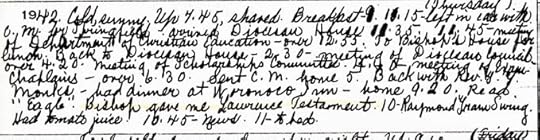 (Thursday)
1942. Cold, sunny. Up 4.45, shaved. Breakfast 9. 10.15 - left in car with
O. M. for Springfield - arrived Diocesan House 11.35. 11.45 meeting
of Department of Christian Education - over 12.55. To Bishop's House for
lunch. Back to Diocesan House - 2.30 - meeting of Diocesan Council
over 4.20. Meeting of Scholarships Committee & of meeting of
Chaplains - over 6.30. Sent C. M. home 5. Back with Rev.
Monks, - had dinner at Woronoco Inn - home 9.20. Read
"Eagle". Bishop gave me Lawrance Testament. 10 - Raymond Gram Swing.
Had tomato juice. 10.45 - News. 11 - to bed.
(Friday)